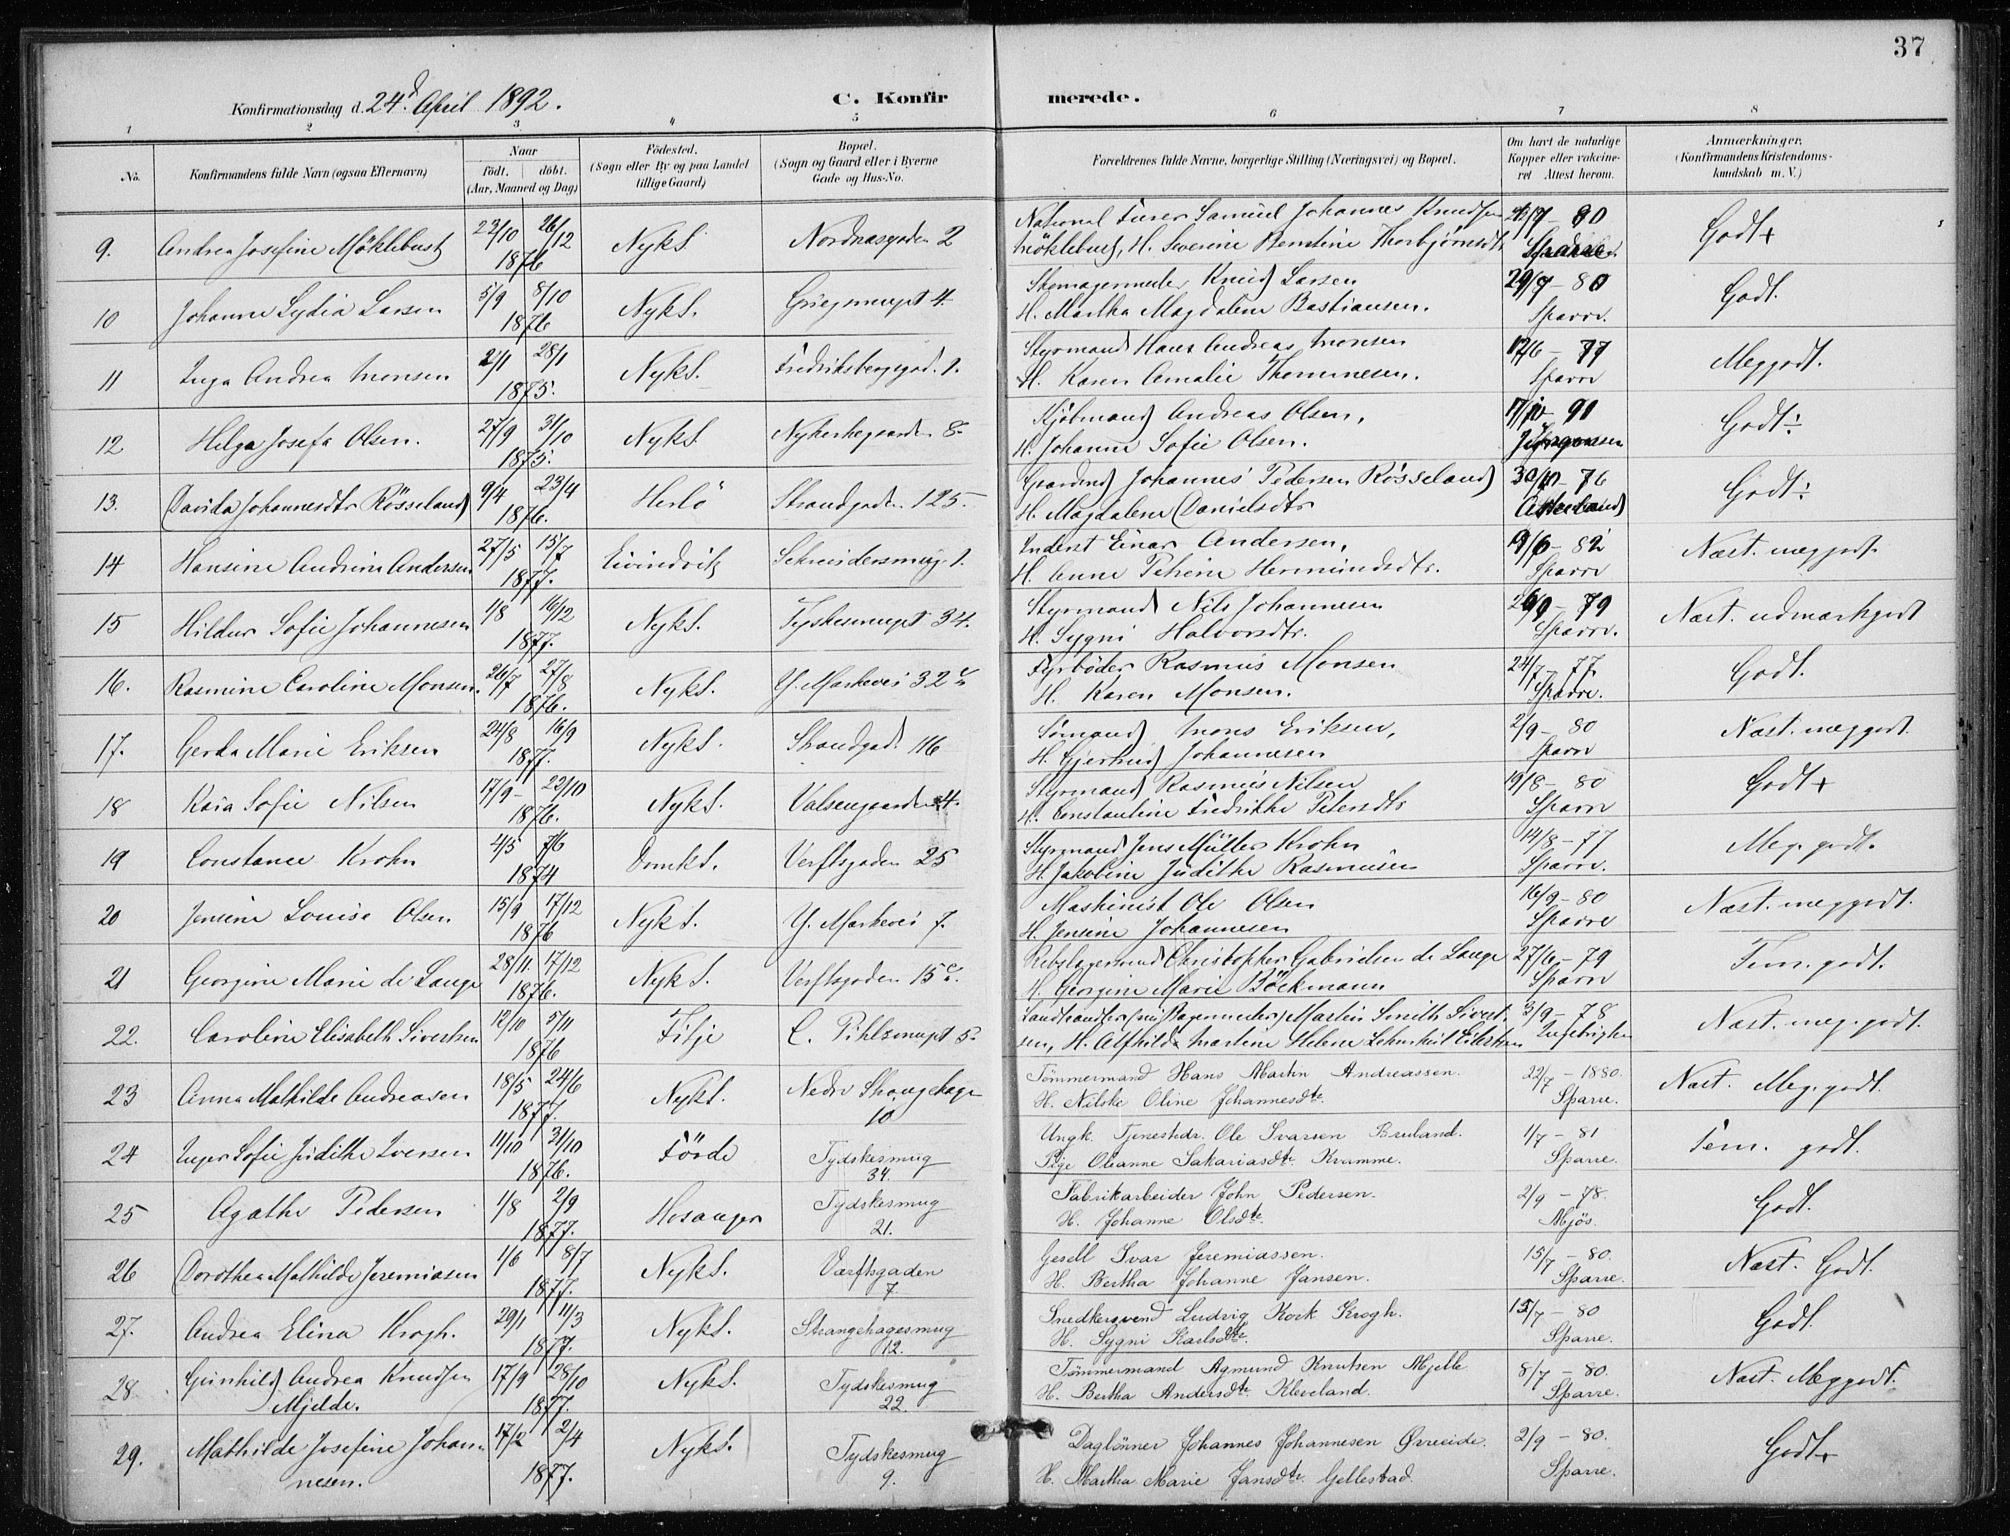 37
Konfirmationsdag d. 24d April 1892.
C. Konfirmerede.
1 2 3 4 5 6 7 8
No.
Konfirmandens fulde Navn (ogsaa Efternavn)
Naar
födt. döbt.
(Aar, Maaned og Dag)
Födested.
(Sogn eller By og paa Landet
tillige Gaard)
Bopæl.
(Sogn og Gaard eller i Byerne
Gade og Hus-No.
Forældrenes fulde Navne, borgerlige Stilling (Næringsvei) og Bopæl.
Om havt de naturlige
Kopper eller vakcine-
ret Attest herom.
Anmærkninger.
(Konfirmandens Kristendoms-
kundskab m. V.)
9. Andrea Josefine Möklebust 22/10 26/12 1876 NykS. Nordnæsgaden 2
National Furer Samuel Johannes Knudsen
Möklebust, H. Severine Berntine Thorbjörnsdtr 80 Godt+
10 Johanne Lydia Larsen 5/9 8/10 1876 NykS. 4.
Skomagermester Knud Larsen
H. Martha Magdalene Bastiansen. 29/7 - 80 Sparre. Godt.
11 Inga Andrea Monsen 2/1 28/1 1875. NykS. Fredriksbergsgad. 1.
Styrmand Hans Andreas Monsen
H. Karen Amalie Thommesen. 77 Sparre Meggodt.
12 Helga Josefa Olsen. 27/9 31/10 1875. NykS Nykirkegaarden 8.
Kjöbmand Andreas Olsen,
H. Johanne Sofie Olsen. 91 Jörgensen Godt÷
13. Davida Johannesdtr Rösseland 9/4 23/4 1876. Herlö Strandgaden 125.
Gaardmd Johannes Pedersen Rösseland
H. Magdalene Danielsdtr 30/10 - 76 Godt÷
14 Hansine Andrine Andersen 27/5 15/7 1877. Eivindvik Skreddersmug 1.
Inderst Einar Andersen,
H. Anne Petrine Hermundsdtr. 82 Sparre Næst. meggodt
15 Hildur Sofie Johannesen 1/8 16/12 1877. NykS. Tyskesmuget 34.
Styrmand Nils Johannesen
H. Sygni Halvorsdtr. 79 Sparre. Næst. udmærkgodt
16. Rasmine Caroline Monsen. 26/7 27/8 1876. NykS. Y. Markevei 32
Fyrböder Rasmus Monsen
H. Karen Monsen. 24/7 - 77. Sparre. Godt.
17. Gerda Marie Eriksen 24/8 16/9 1877. NykS. Strandgad. 116
Sömand Mons Eriksen,
H. Gjertrud Johannesen 2/9 - 80 Sparre Næst. meggodt.
18 Kaia Sofie Nilsen 17/9 - 22/10 1876. NykS. 4.
Styrmand Rasmus Nilsen
H. Constantine Fredrikke Petersdtr 19/8 - 80 Sparre Godt+
19 Constance Krohn 4/5 7/6 1874 DomkS. Verftsgaden 25
Styrmand Jens Müller Krohn
H. Jakobine Judithe Rasmusen 14/8 - 77 Sparre. Meg. godt.
20 Jensine Louise Olsen 15/9 17/12 1876 NykS. Y. Markevei 7.
Maskinist Ole Olsen
H. Jensine Johannesen 16/9 - 80 Sparre Næst. meggodt.
21 Georgine Marie de Lange 28/11. 17/12 1876. NykS. Verftsgaden 15c.
Rebslagersvend Christopher Gabrielsen de Lange
H. Georgine Marie Böckmann 27/6 - 79 Sparre Tem. godt.
22. Caroline Elisabeth Sivertsen 12/10 5/11 1876 Fitje C. Pihlsmuget 5.
Landhandler (nu Bagermester) Martin Smith Sivert-
sen, H. Alfhilda Martine Helene 3/9 - 78 Ingebrigtsen Næst. meg. godt.
23 Anna Mathilde Andreasen 18/5 24/6 1877. NykS. Nedre Strangehage 10
Tömmermand Hans Martin Andreassen.
H. Nilske Oline Johannesdtr. 22/7 - 1880. Sparre. Næst. Meg. godt.
24 Inger Sofie Judithe Iversen 11/10 31/10 1876. Förde Tydskesmug 34.
Ungk. Tjenestedr. Ole Ivarsen Bruland.
Pige Oleanne Sakariasdtr Kvamme. 1/7 - 81 Sparre. Tem. godt.
25 Agathe Pedersen 1/8 2/9 1877. Hosanger Tydskesmug 21.
Fabrikarbeider John Pedersen.
H. Johanne Olsdtr. 2/9 - 78. Mjös. Godt.
26 Dorothea Mathilde Jeremiasen 1/6 8/7 1877. NykS. Værftsgaden 7.
Gesell Ivar Jeremiassen.
H. Bertha Johanne Jansen. 15/7 - 80. Sparre. Næst. Godt.
27. Andrea Elina Krogh. 29/1 11/3 1877. NykS. Strangehagesmug 12.
Snedkersvend Ludvig Kork Krogh.
H. Sygni Karlsdtr. 15/7 - 80 Sparre. Godt.
28. Gunhild Andrea Knudsen
Mjelde. 17/9 28/10 1877. NykS. Tydskesmug 22.
Tömmermand Agmund Knutsen Mjelle.
H. Bertha Andersdtr. Kleveland. 8/7 - 80. Sparre. Næst. Meggodt.
29. Mathilde Josefine Johan-
nesen. 17/2 2/4 1877. NykS. Tydskesmug 9.
Daglönner Johannes Johannesen Örreide.
H. Martha Marie Jansdtr. Gellestad. 2/9 - 80. Sparre. Godt+